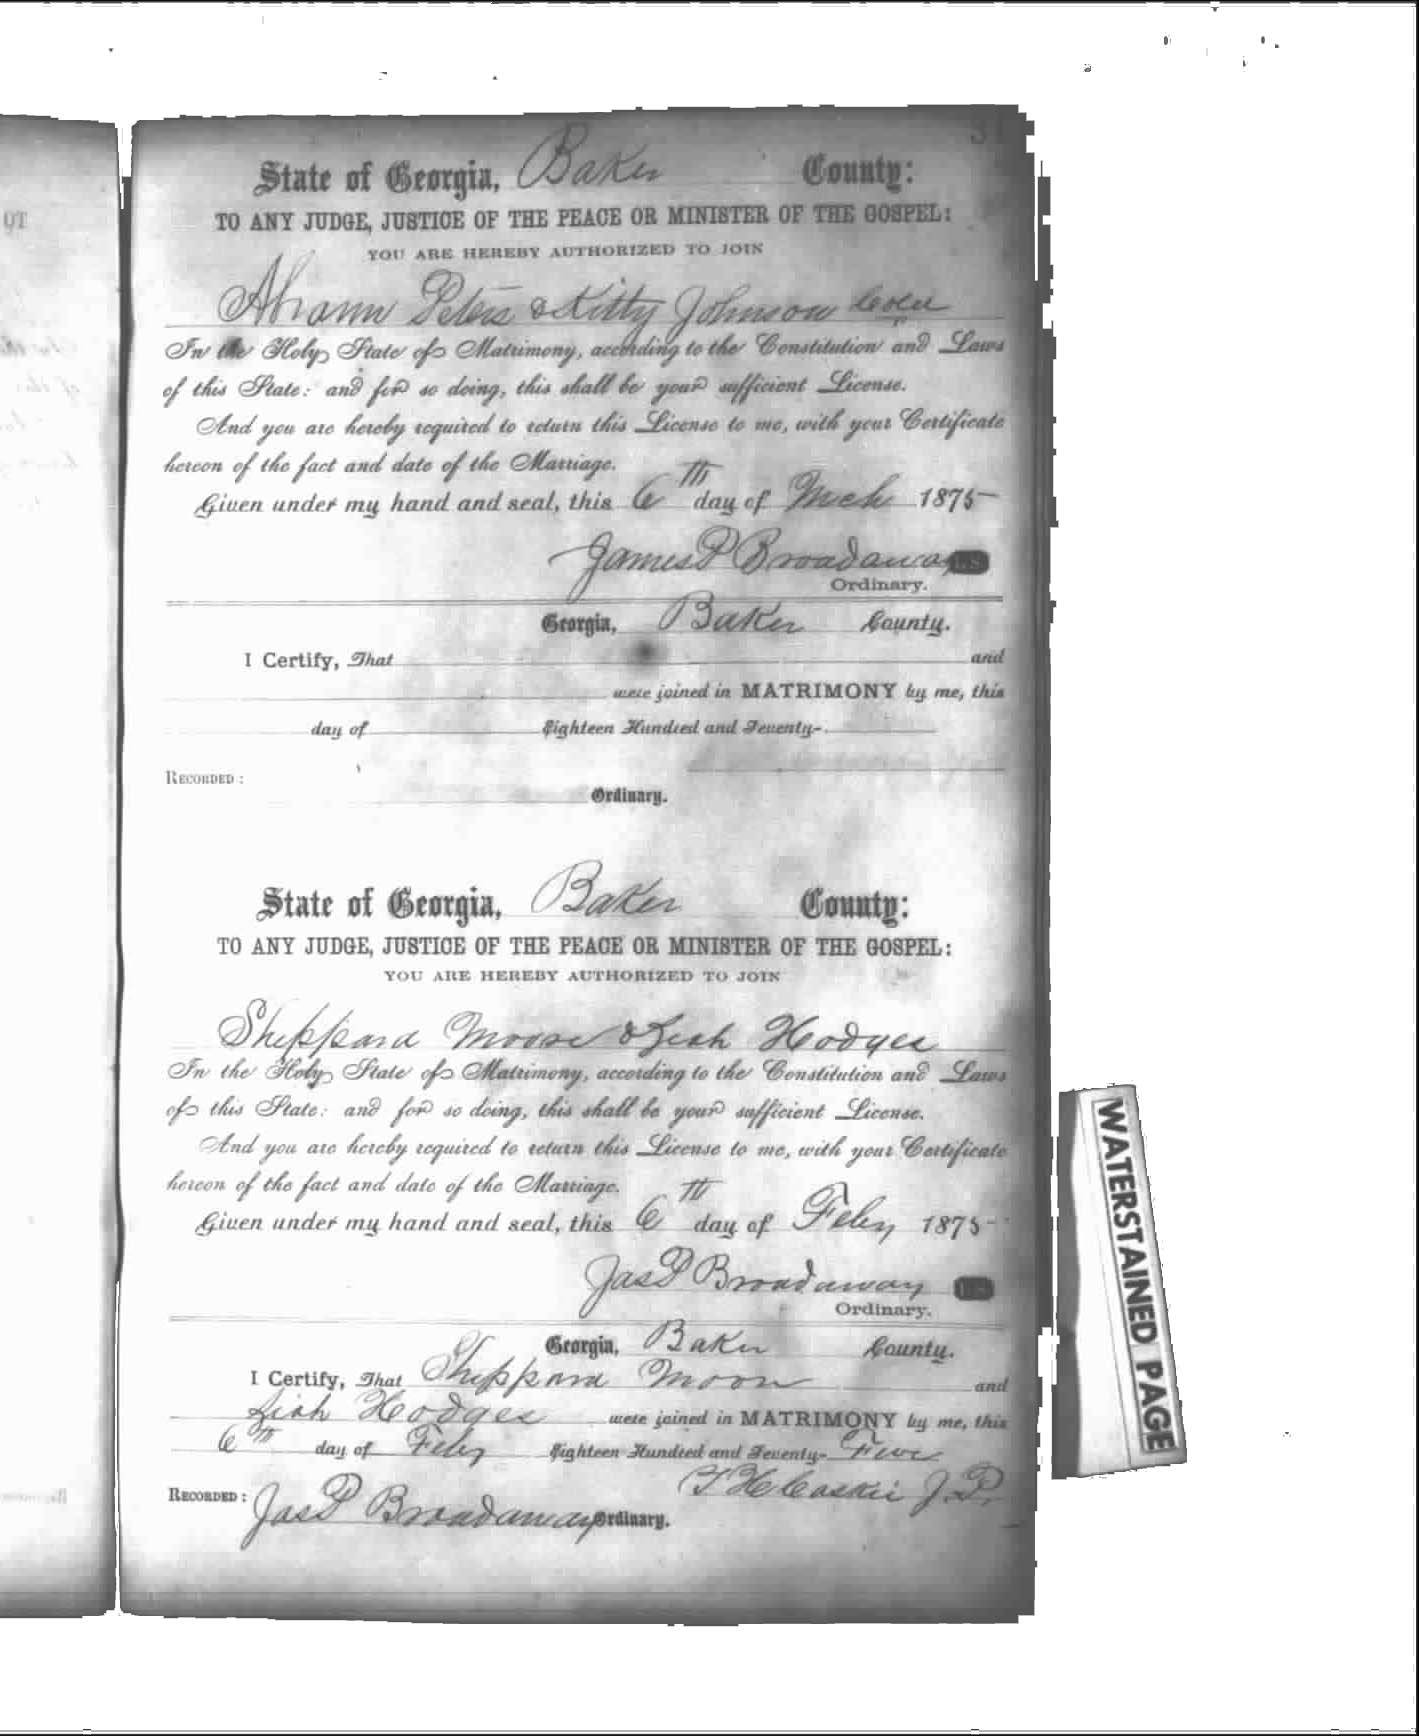 State of Georgia, Baker County:
TO ANY JUDGE, JUSTICE OF THE PEACE OR MINISTER OF THE GOSPEL:
YOU ARE HEREBY AUTHORIZED TO JOIN
Abram Peters & Kitty Johnson Cold
In the Holy State of Matrimony, according to the Constitution and Laws
of this State: and for so doing, this shall be your sufficient License.
And you are hereby required to return this License to me, with your Certificate
hereon of the fact and date of the Marriage.
Given under my hand and seal, this 6th day of Mch 1875
James P Broadaway L.S.
Ordinary.
Georgia, Baker County.
I Certify, That and
were joined in MATRIMONY by me, this
day of Eighteen Hundred and Seventy-
RECORDED:
Ordinary.
State of Georgia, Baker County:
TO ANY JUDGE, JUSTICE OF THE PEACE OR MINISTER OF THE GOSPEL:
YOU ARE HEREBY AUTHORIZED TO JOIN
Sheppard Moore & Liah Hodges
In the Holy State of Matrimony, according to the Constitution and Laws
of this State: and for so doing, this shall be your sufficient License.
And you are hereby required to return this License to me, with your Certificate
hereon of the fact and date of the Marriage.
Given under my hand and seal, this 6th day of Feby 1875
Jas P Broadaway
Ordinary.
Georgia, Baker County.
I Certify, That Sheppard Moore and
Liah Hodges were joined in MATRIMONY by me, this
6th day of Feby Eighteen Hundred and Seventy- Five
T H Caskie J.P.
RECORDED:
Jas P Broadaway Ordinary.
WATERSTAINED PAGE